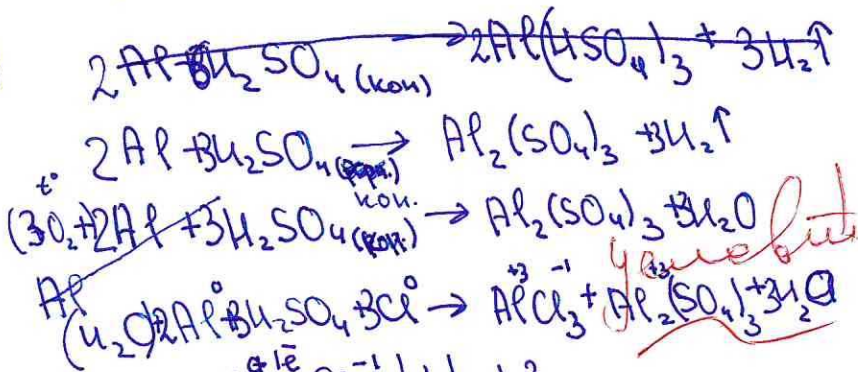 2Al + 6H₂SO₄ (кон) → 2Al(HSO₄)₃ + 3H₂↑
2Al + 3H₂SO₄ кон. → Al₂(SO₄)₃ + 3H₂↑
t°
(3O₂+)2Al + 3H₂SO₄ (кон.) → Al₂(SO₄)₃ + 3H₂O
Al
(H₂O)+2Al⁰+3H₂SO₄+3Cl⁰ → Al⁺³Cl₃⁻¹ + Al₂⁺³(SO₄)₃+3H₂O
+1ē